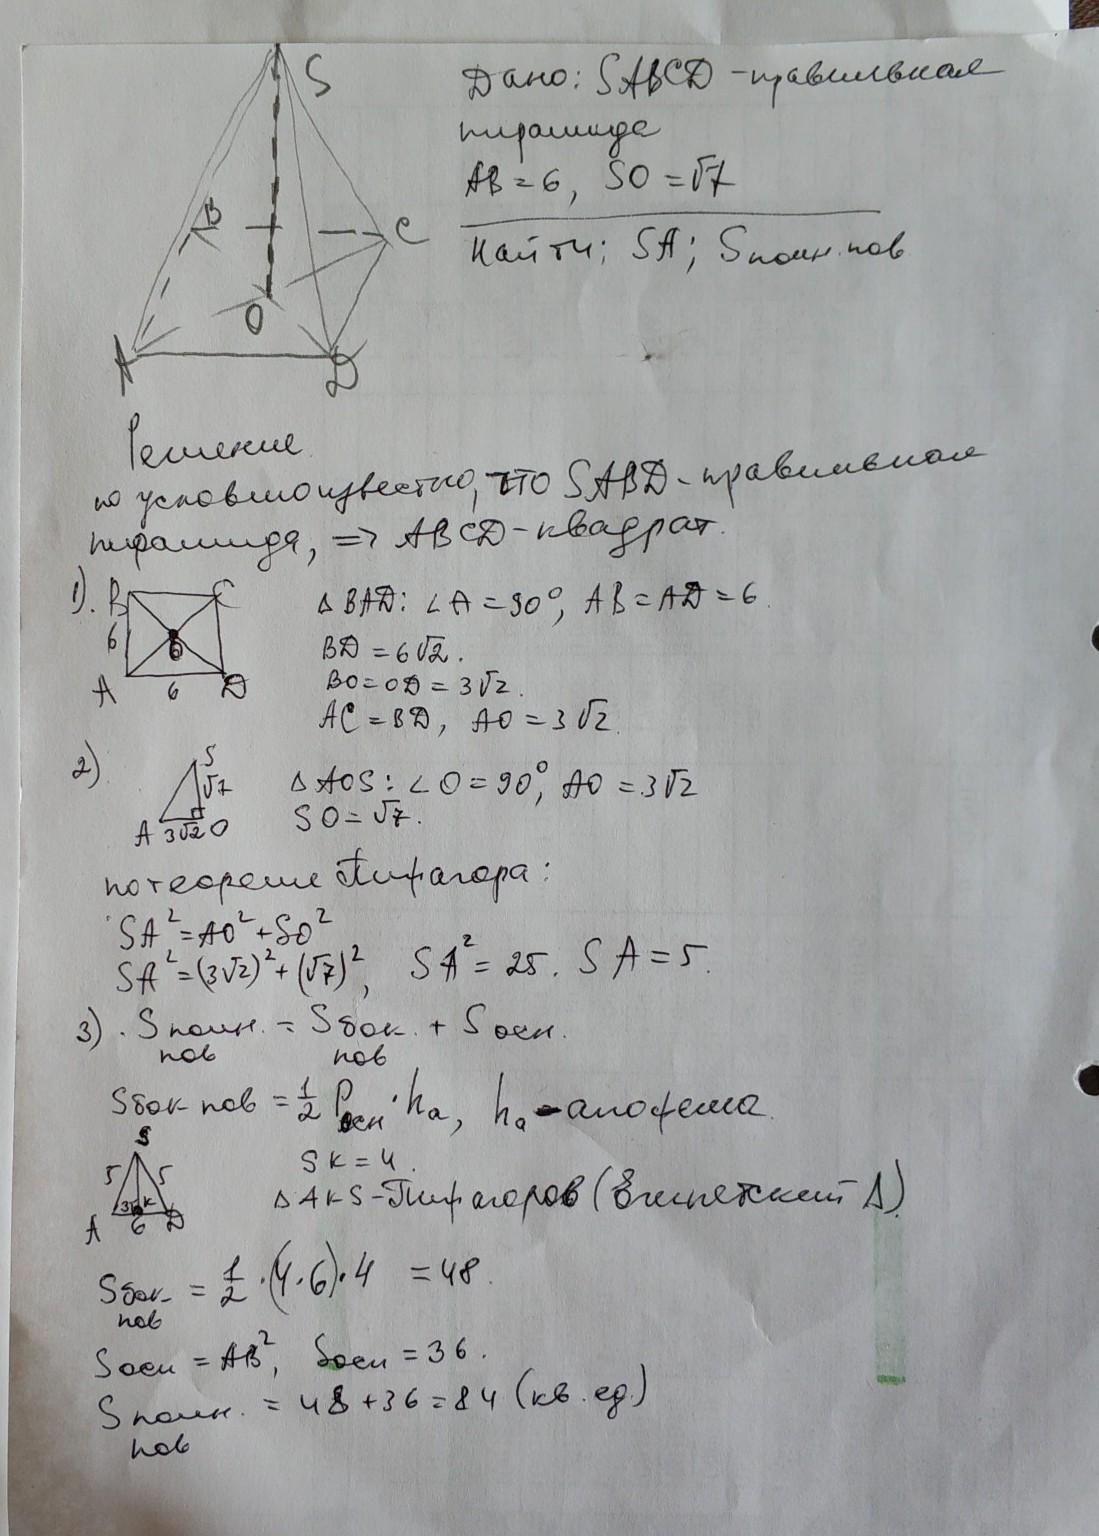 S
Дано: SABCD - правильная
пирамида
AB = 6, SO = √7
Найти; SA; Sполн.пов
B
C
O
A
D
Решение
по условию известно, что SABD - правильная
пирамида, => ABCD - квадрат.
1). B C
6 O
A 6 D
△BAD: ∠A = 90°, AB = AD = 6.
BD = 6√2.
BO = OD = 3√2.
AC = BD, AO = 3√2.
2)
S
√7
A 3√2 O
△AOS: ∠O = 90°, AO = 3√2
SO = √7.
по теореме Пифагора:
SA² = AO² + SO²
SA² = (3√2)² + (√7)², SA² = 25. SA = 5.
3). Sполн. пов = Sбок. пов + Sосн.
Sбок пов = 1/2 Pосн · ha, ha - апофема.
S
5 5
3 K
A 6 D
SK = 4.
△AKS - Пифагоров (Египетский △).
Sбок. пов = 1/2 · (4 · 6) · 4 = 48.
Sосн = AB², Sосн = 36.
Sполн. пов = 48 + 36 = 84 (кв. ед.)